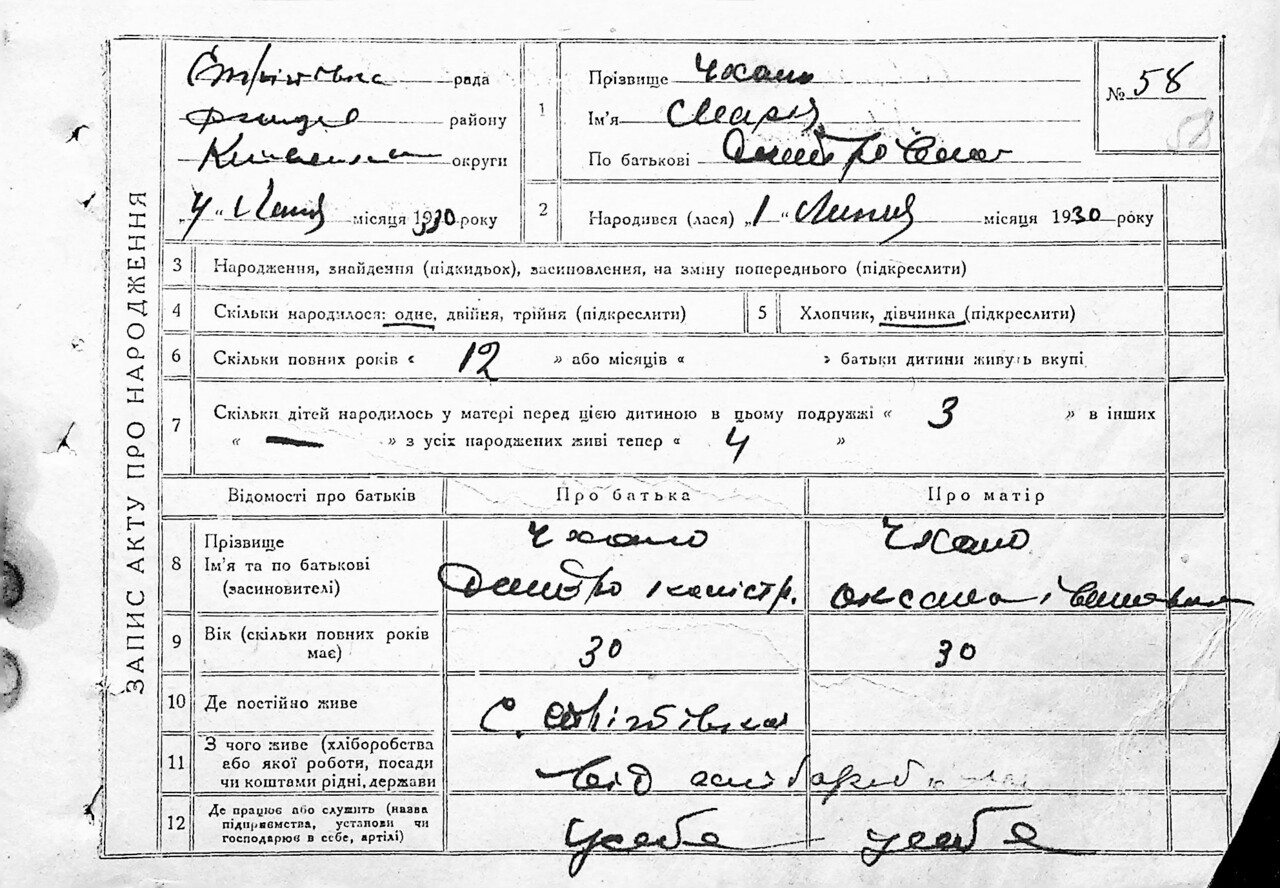 ЗАПИС АКТУ ПРО НАРОДЖЕННЯ
рада
району
округи
„4“ місяця 1930 року
1
Прізвище Чхало
Ім'я Марія
По батькові Дмитровна
№ 58
58
2
Народився (лася) „1“ Липня місяця 1930 року
3 Народження, знайдення (підкидьох), засиновлення, на зміну попереднього (підкреслити)
4 Скільки народилося: одне, двійня, трійня (підкреслити)
5 Хлопчик, дівчинка (підкреслити)
6 Скільки повних років « 12 » або місяців « » батьки дитини живуть вкупі
7 Скільки дітей народилось у матері перед цією дитиною в цьому подружжі « 3 » в інших
« — » з усіх народжених живі тепер « 4 »
Відомості про батьків Про батька Про матір
8 Прізвище Чхало Чхало
Ім'я та по батькові
(засиновителі) Дмитро Оксана
9 Вік (скільки повних років
має) 30 30
10 Де постійно живе с.
11 З чого живе (хліборобства
або якої роботи, посади
чи коштами рідні, держави від
12 Де працює або служить (назва
підприємства, установи чи
господарює в себе, артілі) у себе у себе